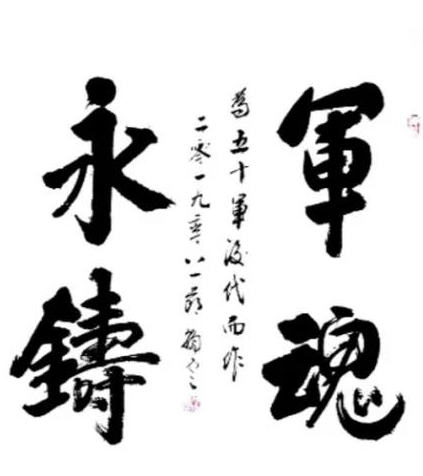 軍魂
永鑄
為五十軍後代而作
二零一九年八一前